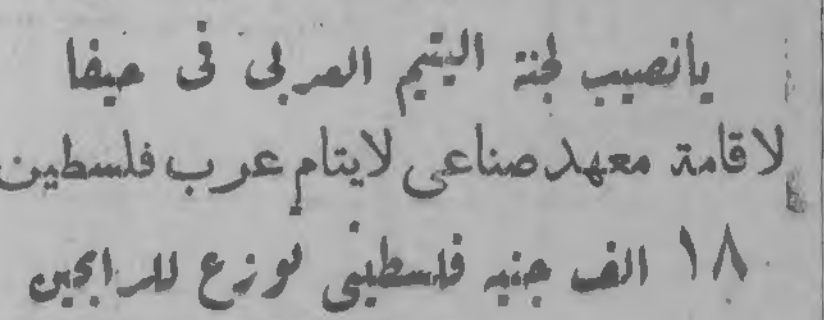 يانصيب لجنة اليتيم العربى فى حيفا
لاقامة معهد صناعى لايتام عرب فلسطين
١٨ الف جنيه فلسطينى توزع للرابحين